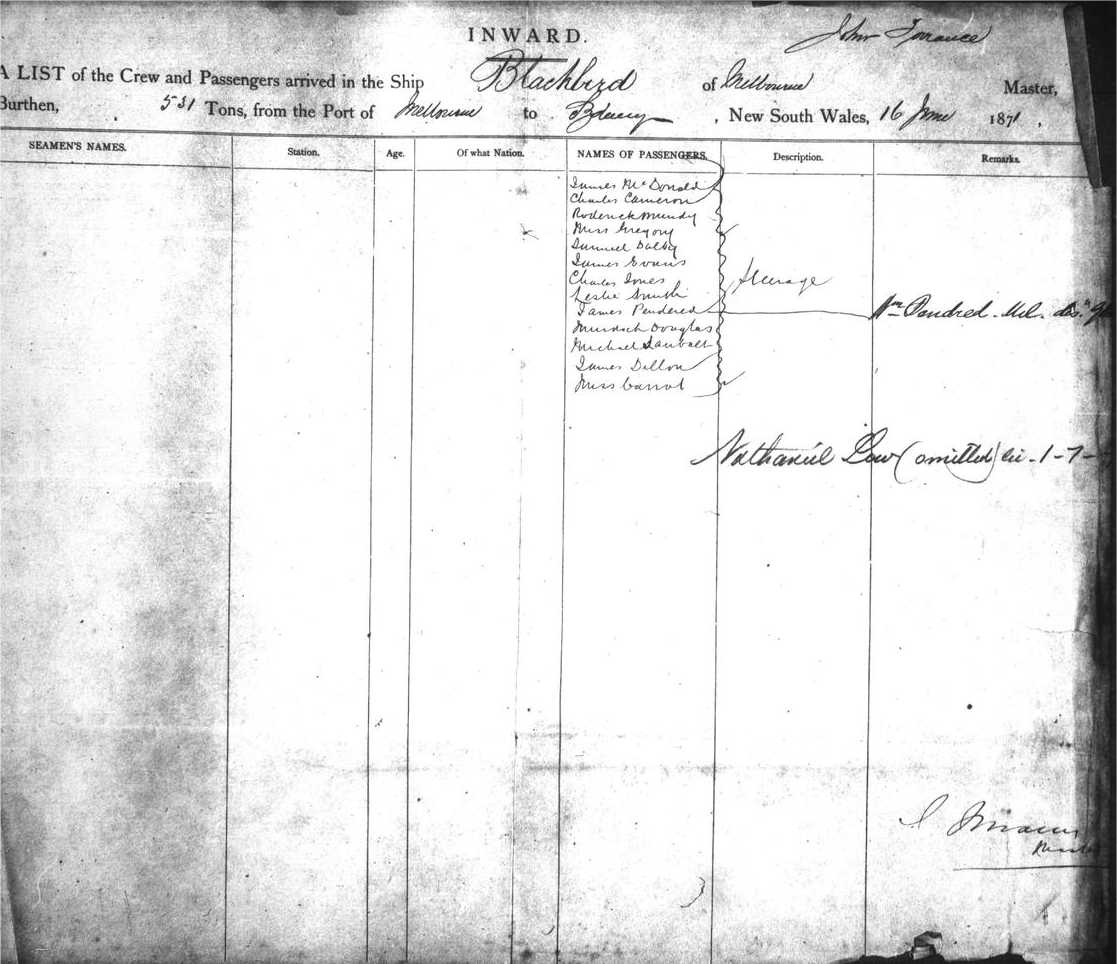 INWARD.
John Torrance
A LIST of the Crew and Passengers arrived in the Ship Blackbird of Melbourne Master,
Burthen, 531 Tons, from the Port of Melbourne to Sydney, New South Wales, 16 June 1871,
SEAMEN'S NAMES. Station. Age. Of what Nation. NAMES OF PASSENGERS. Description. Remarks.
James McDonald
Charles Cameron
Roderick Mundy
Miss Gregory
Samuel Dalby
James Evans
Charles Jones Steerage
Leslie Smith
James Pendered Wm Pendred. Mel.
Murdoch Douglas
Michael
James Dillon
Miss Carrol
Nathaniel Low (omitted) 1-7-